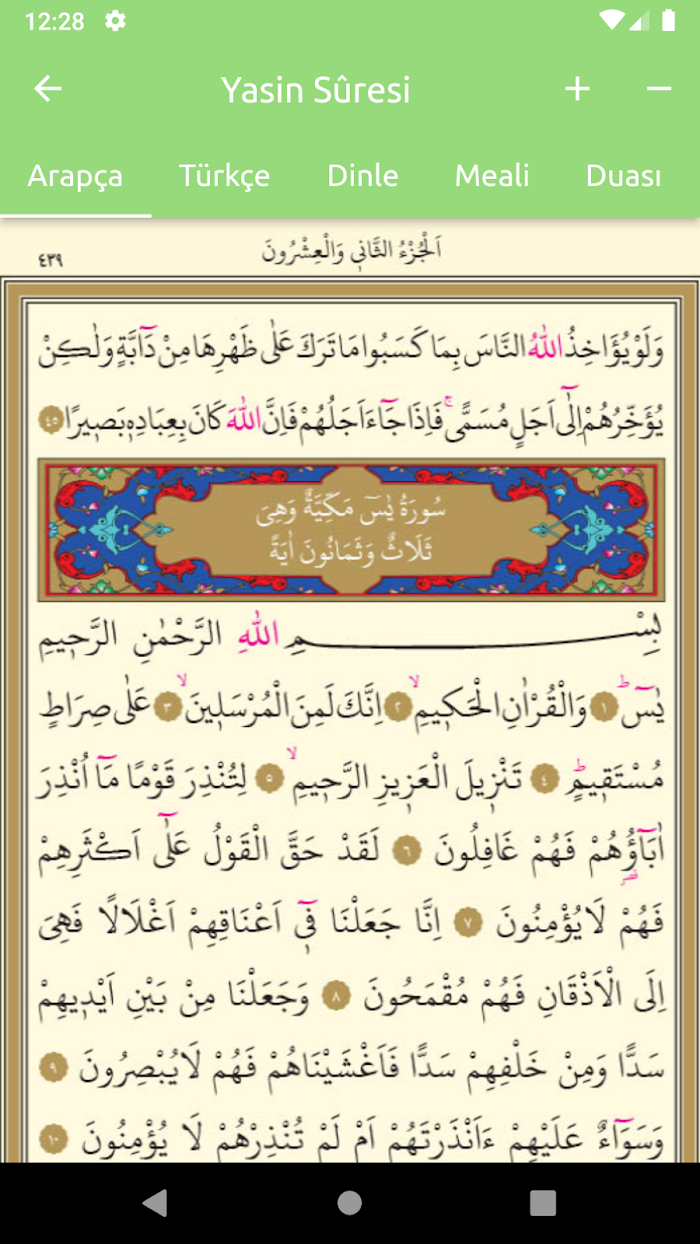 12:28
Yasin Sûresi
Arapça Türkçe Dinle Meali Duası
اَلْجُزْءُ الثَّانٖي وَالْعِشْرُونَ ٤٣٩
وَلَوْ يُؤَاخِذُ اللّٰهُ النَّاسَ بِمَا كَسَبُوا مَا تَرَكَ عَلٰى ظَهْرِهَا مِنْ دَٓابَّةٍ وَلٰكِنْ
يُؤَخِّرُهُمْ اِلٰٓى اَجَلٍ مُسَمًّىۚ فَاِذَا جَٓاءَ اَجَلُهُمْ فَاِنَّ اللّٰهَ كَانَ بِعِبَادِهٖ بَصٖيرًا ٤٥
سُورَةُ يٰسٓ مَكِّيَّةٌ وَهِىَ
ثَلَاثٌ وَثَمَانُونَ اٰيَةً
بِسْمِ اللّٰهِ الرَّحْمٰنِ الرَّحٖيمِ
يٰسٓۜ ١ وَالْقُرْاٰنِ الْحَكٖيمِۙ ٢ اِنَّكَ لَمِنَ الْمُرْسَلٖينَۙ ٣ عَلٰى صِرَاطٍ
مُسْتَقٖيمٍۜ ٤ تَنْزٖيلَ الْعَزٖيزِ الرَّحٖيمِۙ ٥ لِتُنْذِرَ قَوْمًا مَٓا اُنْذِرَ
اٰبَٓاؤُ۬هُمْ فَهُمْ غَافِلُونَ ٦ لَقَدْ حَقَّ الْقَوْلُ عَلٰٓى اَكْثَرِهِمْ
فَهُمْ لَا يُؤْمِنُونَ ٧ اِنَّا جَعَلْنَا فٖٓى اَعْنَاقِهِمْ اَغْلَالًا فَهِىَ
اِلَى الْاَذْقَانِ فَهُمْ مُقْمَحُونَ ٨ وَجَعَلْنَا مِنْ بَيْنِ اَيْدٖيهِمْ
سَدًّا وَمِنْ خَلْفِهِمْ سَدًّا فَاَغْشَيْنَاهُمْ فَهُمْ لَا يُبْصِرُونَ ٩
وَسَوَٓاءٌ عَلَيْهِمْ ءَاَنْذَرْتَهُمْ اَمْ لَمْ تُنْذِرْهُمْ لَا يُؤْمِنُونَ ١٠